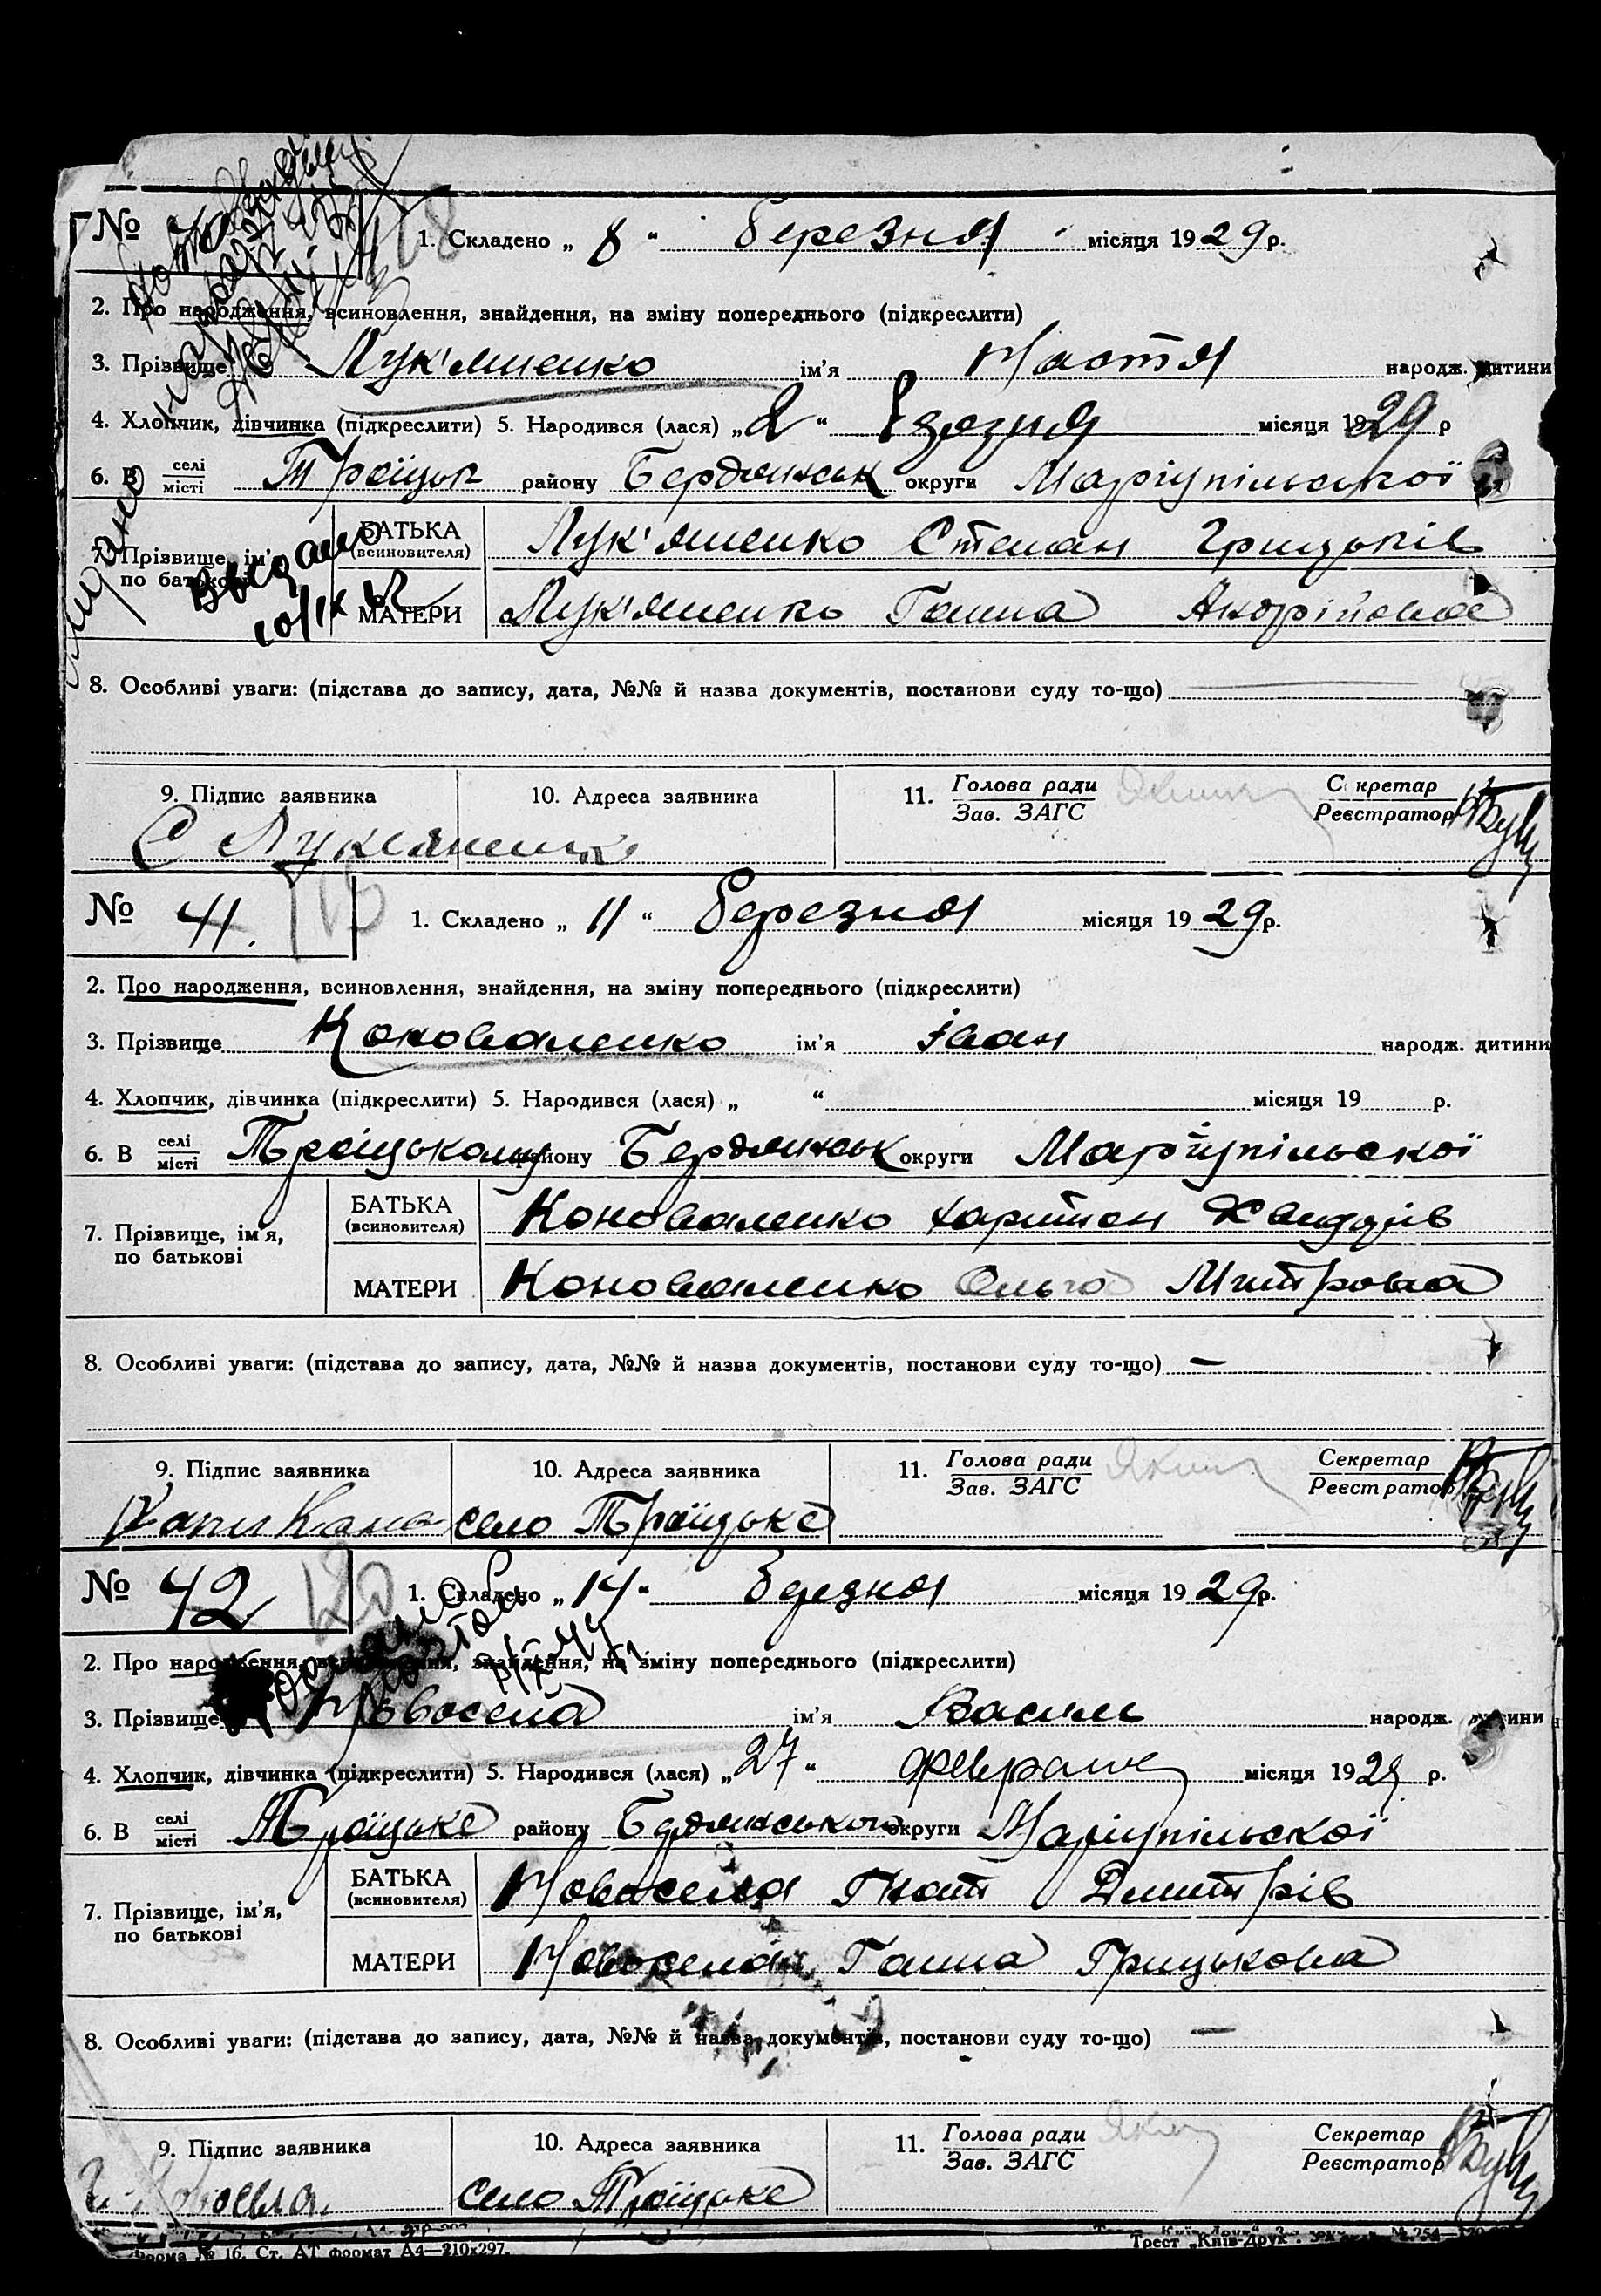 № 1. Складено „ 8 “ березня місяця 1929 р.
2. Про народження, всиновлення, знайдення, на зміну попереднього (підкреслити)
3. Прізвище Лук'яненко ім'я Настя народж. дитини
4. Хлопчик, дівчинка (підкреслити) 5. Народився (лася) „ 2 “ березня місяця 1929 р
6. В селі місті Троїцьк району Бердянськ округи Маріупільської
7. Прізвище, ім'я, по батькові
БАТЬКА (всиновителя) Лук'яненко Степан Грицьків
МАТЕРИ Лук'яненко Ганна Андріївна
Выдано
10/IX
8. Особливі уваги: (підстава до запису, дата, №№ й назва документів, постанови суду то-що)
9. Підпис заявника 10. Адреса заявника 11. Голова ради Зав. ЗАГС Секретар Реєстратор
С Лукяненко
№ 41. 1. Складено „ 11 “ березня місяця 1929 р.
2. Про народження, всиновлення, знайдення, на зміну попереднього (підкреслити)
3. Прізвище Коноваленко ім'я Іван народж. дитини
4. Хлопчик, дівчинка (підкреслити) 5. Народився (лася) „ “ місяця 19 р.
6. В селі місті Троїцькому району Бердянськ округи Маріупільскої
7. Прізвище, ім'я, по батькові
БАТЬКА (всиновителя) Коноваленко Харитон
МАТЕРИ Коноваленко Ольга Митровна
8. Особливі уваги: (підстава до запису, дата, №№ й назва документів, постанови суду то-що) —
9. Підпис заявника 10. Адреса заявника 11. Голова ради Зав. ЗАГС Секретар Реєстратор
село Троїцьке
№ 42 120 1. Складено „ 14 “ березня місяця 1929 р.
2. Про народження, всиновлення, знайдення, на зміну попереднього (підкреслити)
3. Прізвище Новосела ім'я Василь народж. дитини
4. Хлопчик, дівчинка (підкреслити) 5. Народився (лася) „ 27 “ февраля місяця 1929 р.
6. В селі місті Троїцьке району Бердянського округи Маріупільскої
7. Прізвище, ім'я, по батькові
БАТЬКА (всиновителя) Новосела Гнат Дмитрів
МАТЕРИ Новосела Ганна Грицьковна
8. Особливі уваги: (підстава до запису, дата, №№ й назва документів, постанови суду то-що) —
9. Підпис заявника 10. Адреса заявника 11. Голова ради Зав. ЗАГС Секретар Реєстратор
село Троїцьке
Форма № 16. Ст. АТ формат А4—210х297. Трест „Київ-Друк“.